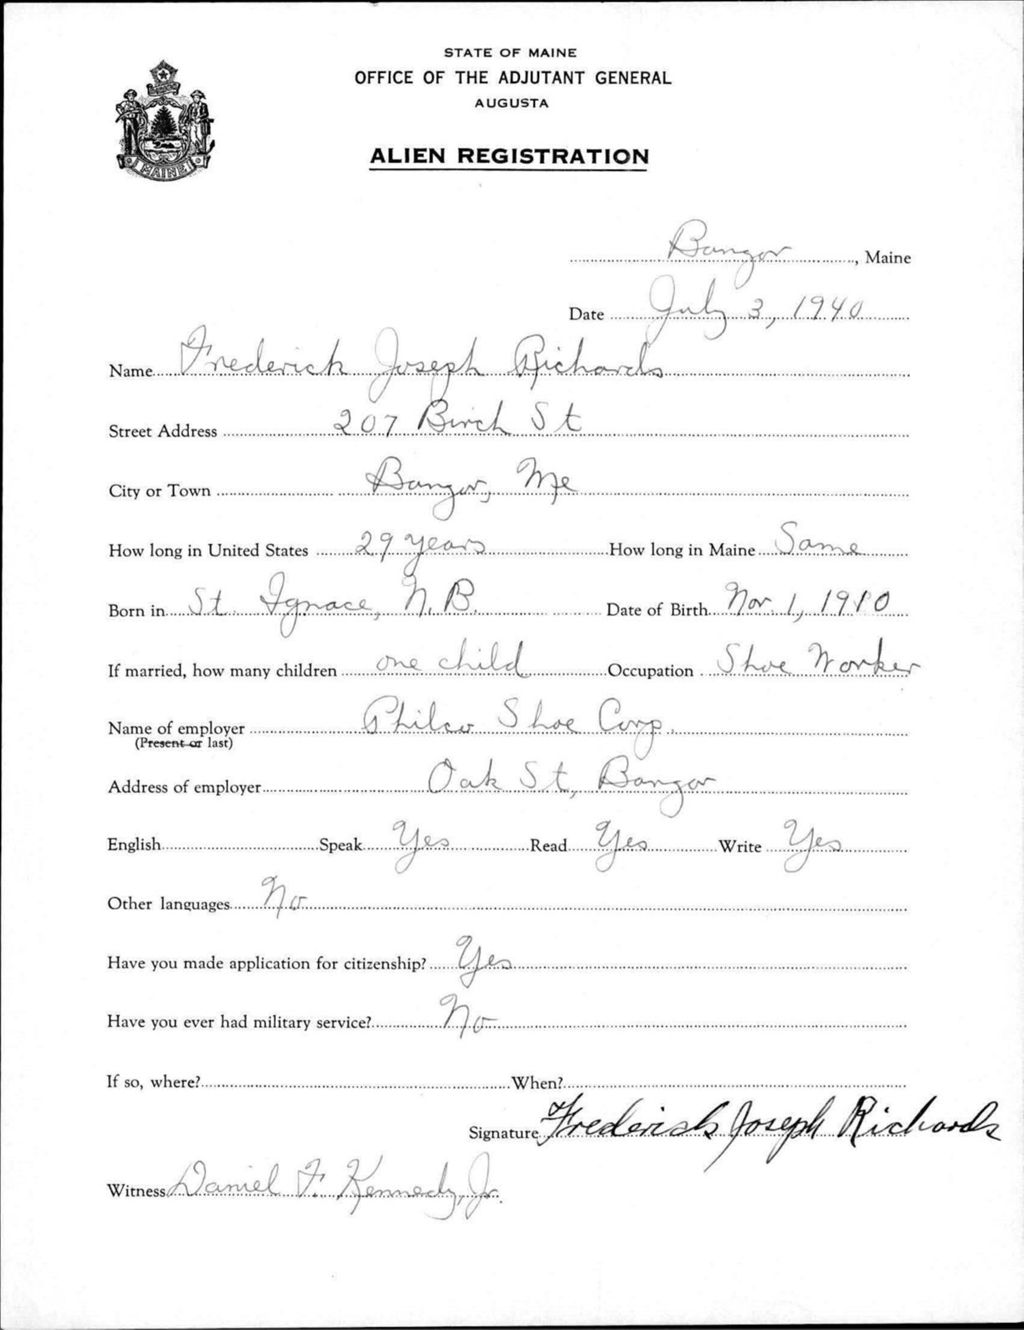 STATE OF MAINE
OFFICE OF THE ADJUTANT GENERAL
AUGUSTA
ALIEN REGISTRATION
MAINE
Bangor, Maine
Date July 3, 1940
Name Frederick Joseph Richards
Street Address 207 Birch St
City or Town Bangor, Me
How long in United States 29 years How long in Maine Same
Born in St. Ignace, N.B. Date of Birth Nov. 1, 1910
If married, how many children one child Occupation Shoe Worker
Name of employer Philco Shoe Corp.
(Present or last)
Address of employer Oak St, Bangor
English Speak Yes Read Yes Write Yes
Other languages No
Have you made application for citizenship? Yes
Have you ever had military service? No
If so, where? When?
Signature Frederick Joseph Richards
Witness Daniel F. Kennedy, Jr.